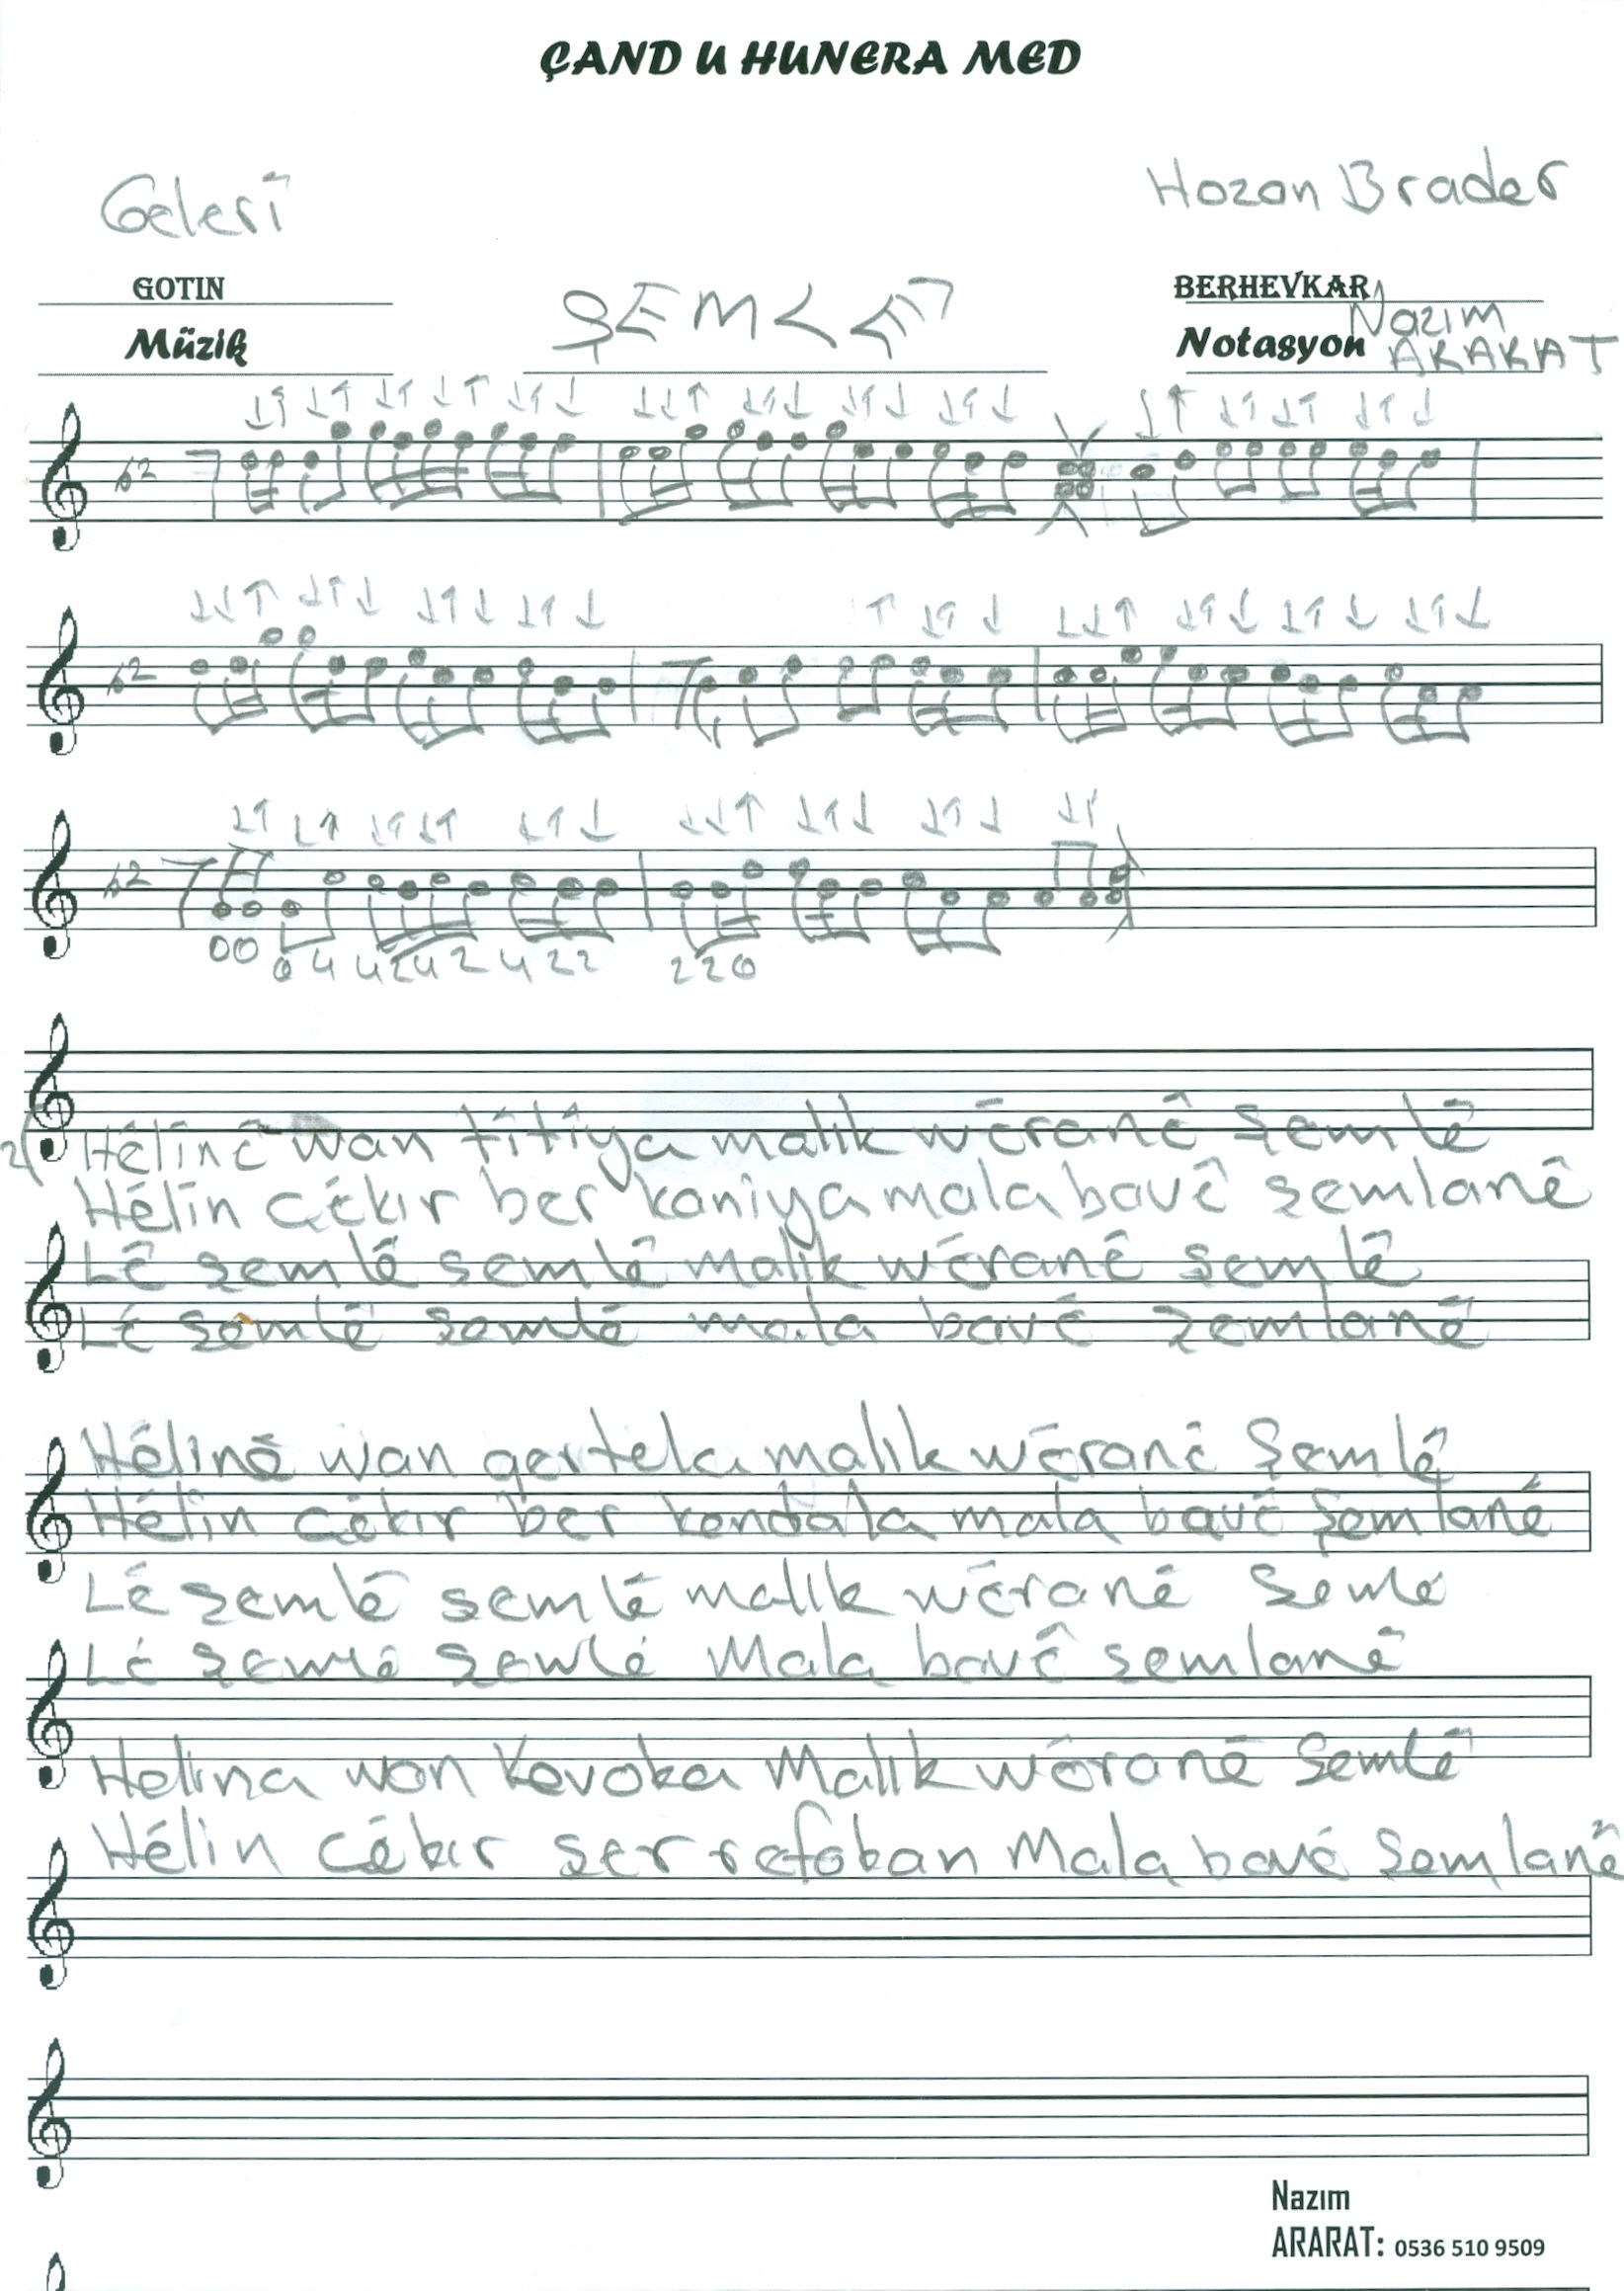 ÇAND U HUNERA MED
Gelerî
Hozan Brader
GOTIN
BERHEVKAR
ŞEMLÊ
Müzik
Notasyon Nazım ARARAT
b2
b2
b2
00 0 4 4 2 4 2 4 2 2 2 2 0
2( Hêlînê wan tîtîya malik wêranê şemlê
Hêlîn çêkır ber kaniya mala bavê şemlanê
Lê şemlê şemlê malik wêranê şemlê
Lê şemlê şemlê mala bavê şemlanê
Hêlînê wan qertela malık wêranê şemlê
Hêlîn çêkır ber kendala mala bavê şemlanê
Lê şemlê şemlê malık wêranê şemlê
Lê şemlê şemlê Mala bavê şemlanê
Helina wan Kevoka Malık wêranê şemlê
Hêlin çêkır ser refêban Mala bavê şemlanê
Nazım
ARARAT: 0536 510 9509